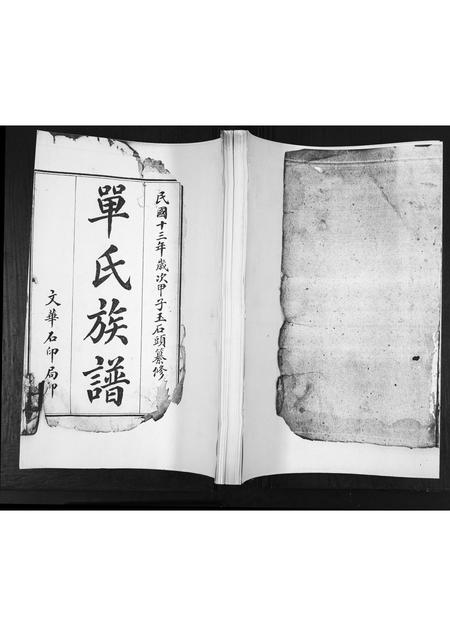 民國十三年歲次甲子玉石頭纂修
單氏族譜
文華石印局印